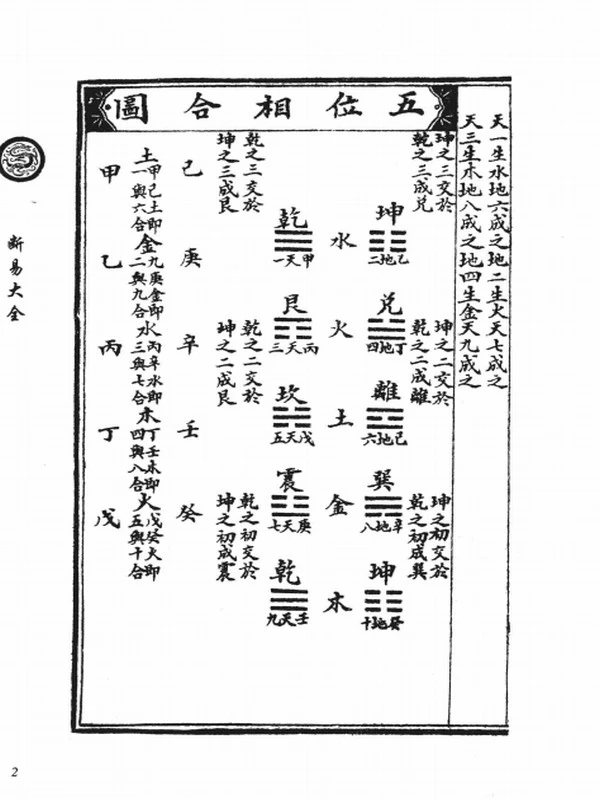 五位相合圖
天一生水地六成之地二生火天七成之
天三生木地八成之地四生金天九成之
坤之三交於
乾之三成兌
坤之二交於
乾之二成離
坤之初交於
乾之初成巽
坤
己地二
兌
丁地四
離
己地六
巽
辛地八
坤
癸地十
水
火
土
金
木
乾
甲天一
艮
丙天三
坎
戊天五
震
庚天七
乾
壬天九
乾之三交於
坤之三成艮
乾之二交於
坤之二成艮
乾之初交於
坤之初成震
己
庚
辛
壬
癸
土
甲己土即
一與六合
金
九庚金即
二與九合
水
丙辛水即
三與七合
木
丁壬木即
四與八合
火
戊癸火即
五與十合
甲
乙
丙
丁
戊
断易大全
2